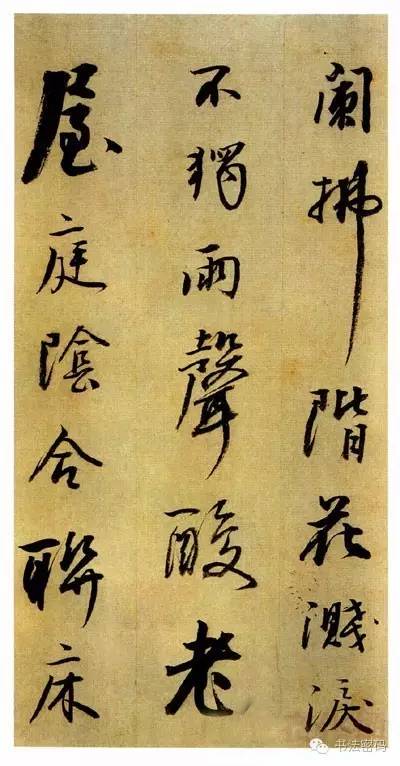 阑拂階花濺淚
不獨雨聲酸老
屋庭陰合聯床
书法密码